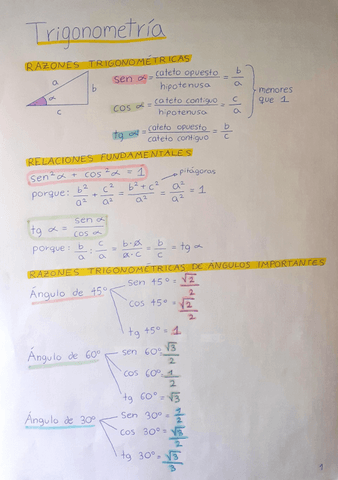 Trigonometría
RAZONES TRIGONOMÉTRICAS
a
b
α
c
sen α = cateto opuesto / hipotenusa = b/a
cos α = cateto contiguo / hipotenusa = c/a
tg α = cateto opuesto / cateto contiguo = b/c
menores
que 1
RELACIONES FUNDAMENTALES
sen²α + cos²α = 1
pitágoras
porque: b²/a² + c²/a² = b²+c²/a² = a²/a² = 1
tg α = sen α / cos α
porque: b/a : c/a = b·a/a·c = b/c = tg α
RAZONES TRIGONOMÉTRICAS DE ÁNGULOS IMPORTANTES
Ángulo de 45º
sen 45º = √2/2
cos 45º = √2/2
tg 45º = 1
Ángulo de 60º
sen 60º √3/2
cos 60º 1/2
tg 60º = √3
Ángulo de 30º
sen 30º = 1/2
cos 30º = √3/2
tg 30º = √3/3
1